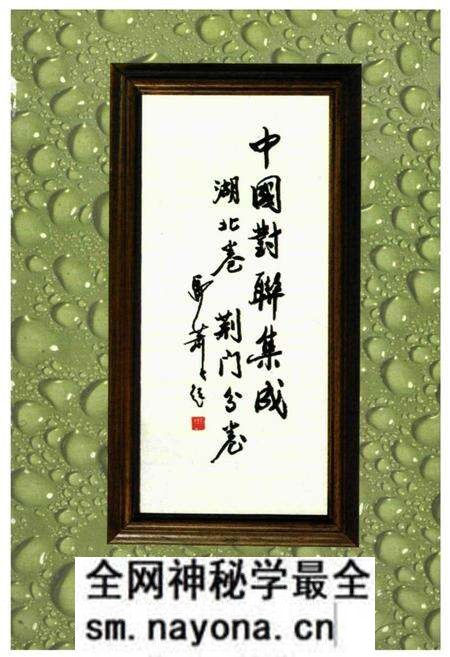 中國對聯集成
湖北卷 荆门分卷
全网神秘学最全
sm.nayona.cn